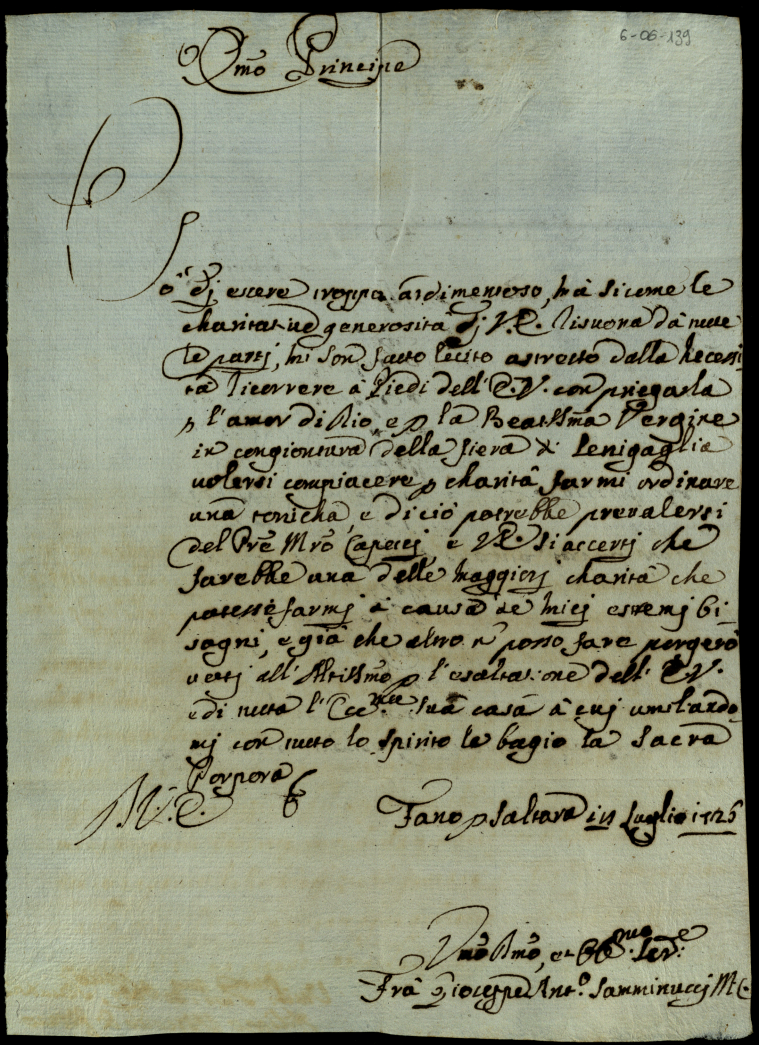 6-06-139
Emo Principe
So di essere troppo ardimentoso, mà sicome le
charitat.ue generosità di V.E. risuona dà tutte
le parti, mi son fatto lecito astretto dalla necessi
tà ricorrere à Piedi dell'E.V. con priegarla
p l'amor di Dio, e p la Beatissma Vergine
in congiontura della fiera di Senigaglia
volersi compiacere p charità farmi ordinare
una tonicha, e di ciò potrebbe prevalersi
del Pre Mro Capecej, e V.E. si accertj che
farebbe una delle maggiorj charità che
potesse farmj à causa de miej estremj bi-
sogni, e già che altro n posso fare porgerò
votj all'Altissmo p l'esaltatione dell'E.V.
e di tutta l'Ecc.ma sua casa à cuj umiliando-
mj con tutto lo spirito le bagio la sacra
Porpora
D.V.E.
Fano p Saltara in Luglio 1726
Vmo Dmo, et Obb.mo Ser.e
Frà Gioseppe Ant.o Samminuccj M C